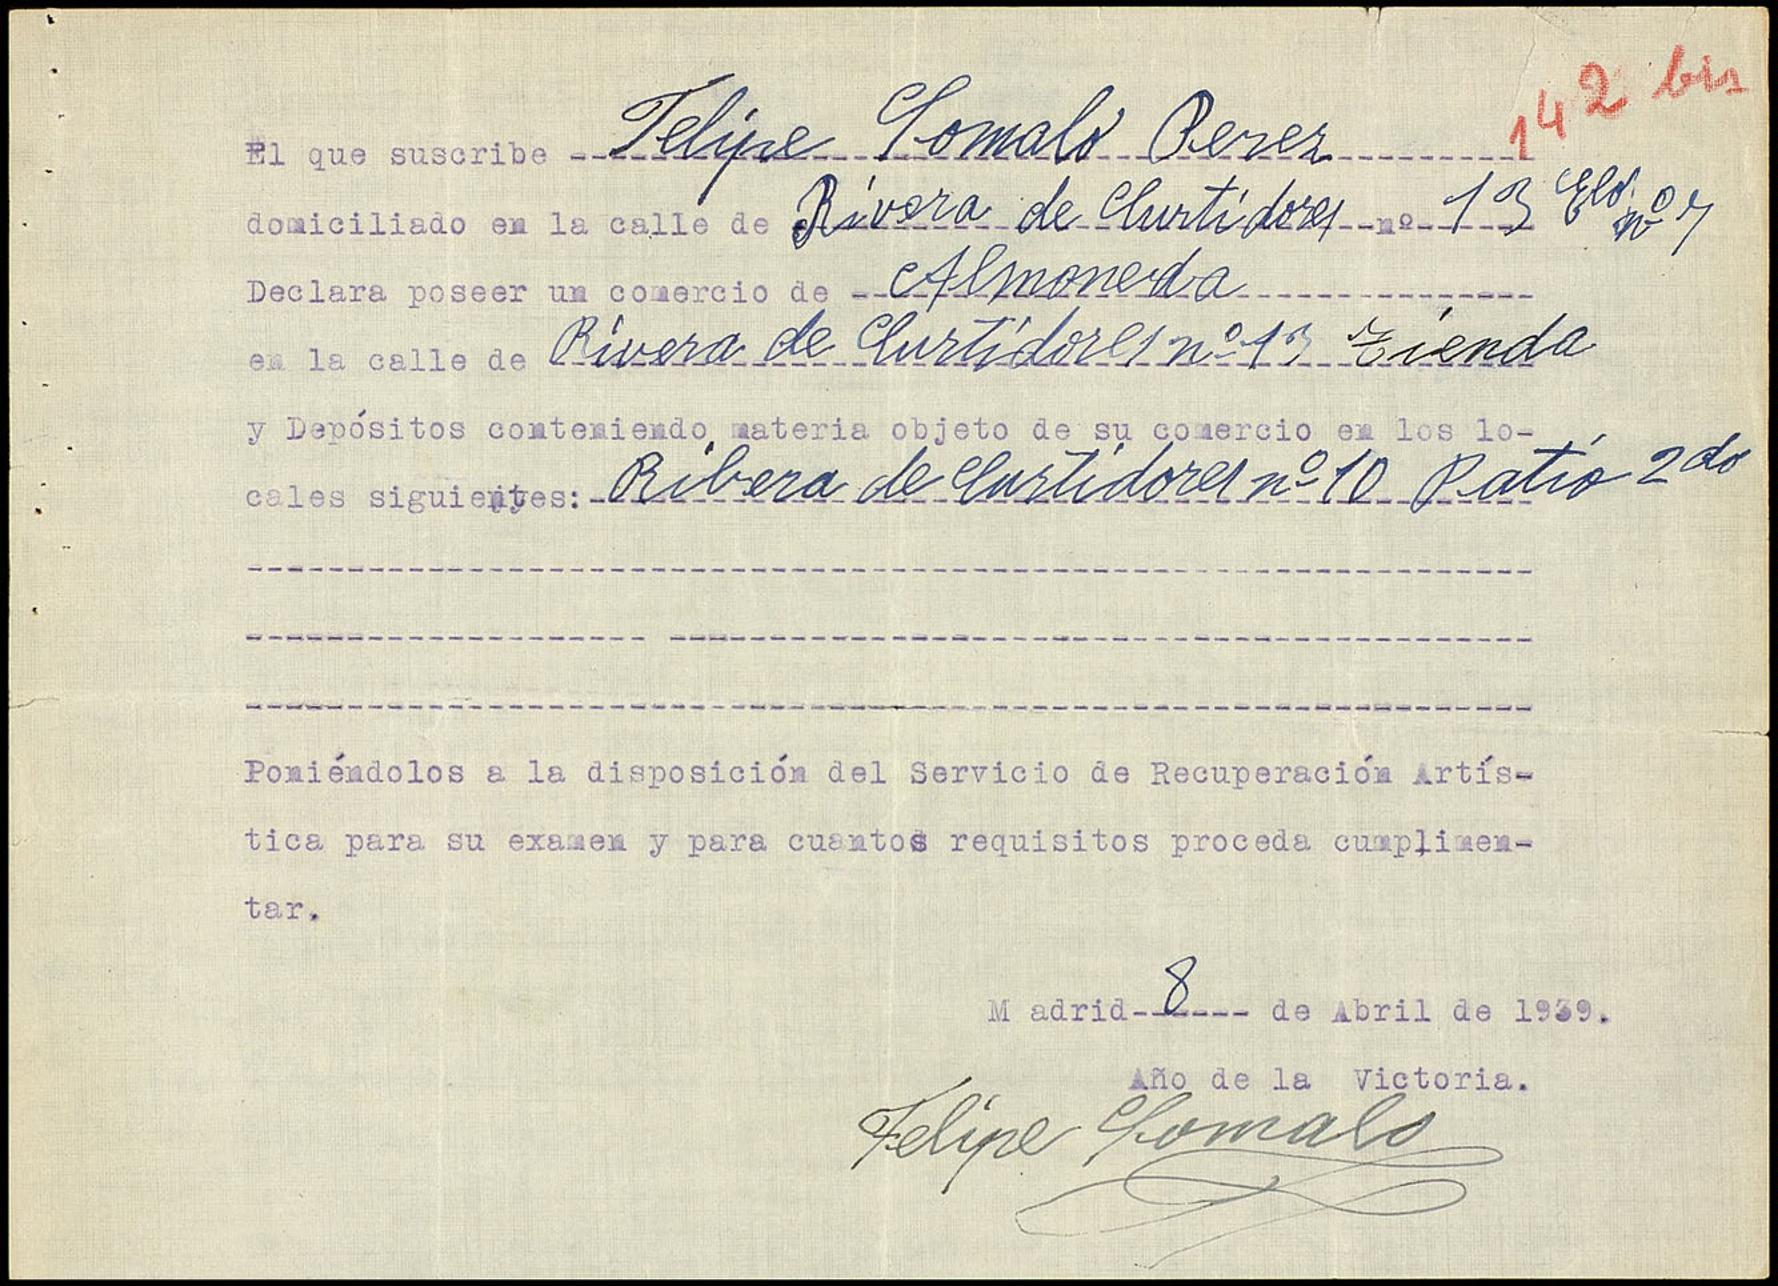 142 bis
El que suscribe Felipe Somaló Perez
domiciliado en la calle de Rivera de Curtidores nº 13 nº 7
Declara poseer un comercio de Almoneda
en la calle de Rivera de Curtidores nº 13 Tienda
y Depósitos conteniendo materia objeto de su comercio en los lo-
cales siguientes: Ribera de Curtidores nº 10 Patio 2do
Poniéndolos a la disposición del Servicio de Recuperación Artís-
tica para su examen y para cuantos requisitos proceda cumplimen-
tar.
Madrid 8 de Abril de 1939.
Año de la Victoria.
Felipe Somalo